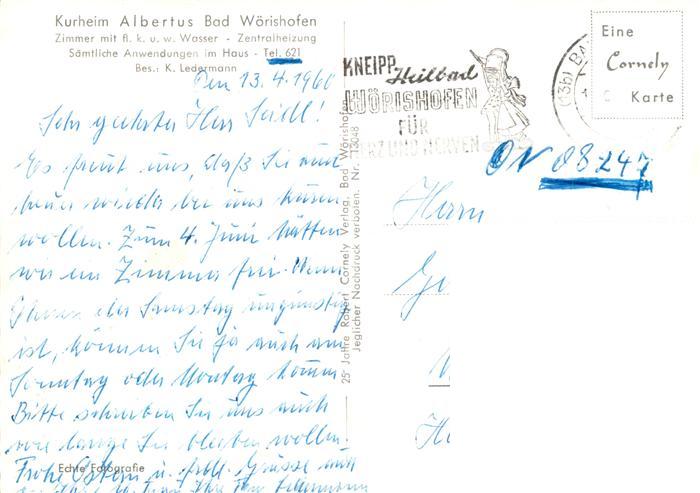 Kurheim Albertus Bad Wörishofen
Zimmer mit fl. k. u. w. Wasser - Zentralheizung
Sämtliche Anwendungen im Haus - Tel. 621
Bes.: K. Ledermann
Den 13.4.1960
Sehr geehrter Herr Seidl!
Es freut uns, daß Sie auch
heuer wieder bei uns kuren
wollen. Zum 4. Juni hätten
wir ein Zimmer frei. Wenn
Ihnen der Samstag ungünstig
ist, können Sie ja auch am
Sonntag oder Montag kommen
Bitte schreiben Sie uns auch
wie lange Sie bleiben wollen.
Frohe Ostern u. frdl. Grüsse auch
Ihre Fam. Ledermann
Echte Fotografie
25 Jahre Robert Cornely Verlag, Bad Wörishofen
Jeglicher Nachdruck verboten. Nr. 13048
KNEIPP
Heilbad
WÖRISHOFEN
FÜR
HERZ UND NERVEN
(13b) BA
Eine
Cornely
Karte
ON 08247
Herrn